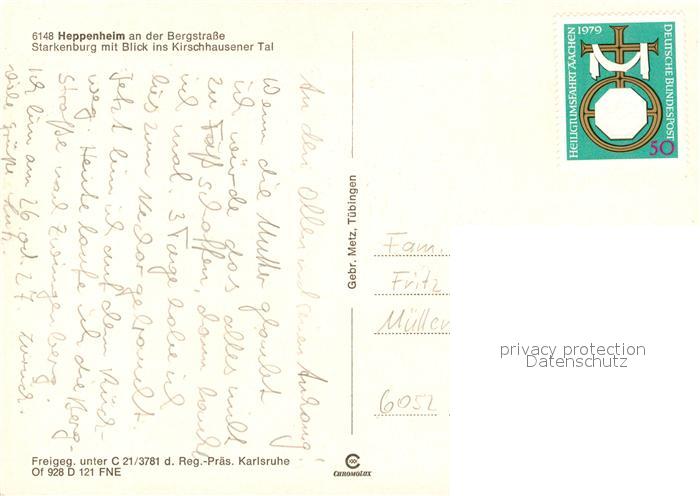 6148 Heppenheim an der Bergstraße
Starkenburg mit Blick ins Kirschhausener Tal
HEILIGTUMSFAHRT AACHEN 1979
DEUTSCHE BUNDESPOST
50
An den Alten und seinen Anhang!
Wenn die Mutter glaubt
ich würde das alles nicht
zu Fuß schaffen, dann
ich mal. 3 Tage habe ich
bis zum Neckar gebraucht.
Jetzt bin ich auf dem Rück-
weg. Heute laufe ich die Berg-
Straße nach Zwingenberg.
Ich bin am 26 od. 27. zurück.
Viele Grüße Lutz.
Gebr. Metz, Tübingen
Fam.
Fritz
Müller
6052
privacy protection
Datenschutz
Freigeg. unter C 21/3781 d. Reg.-Präs. Karlsruhe
Of 928 D 121 FNE
CHROMOLUX